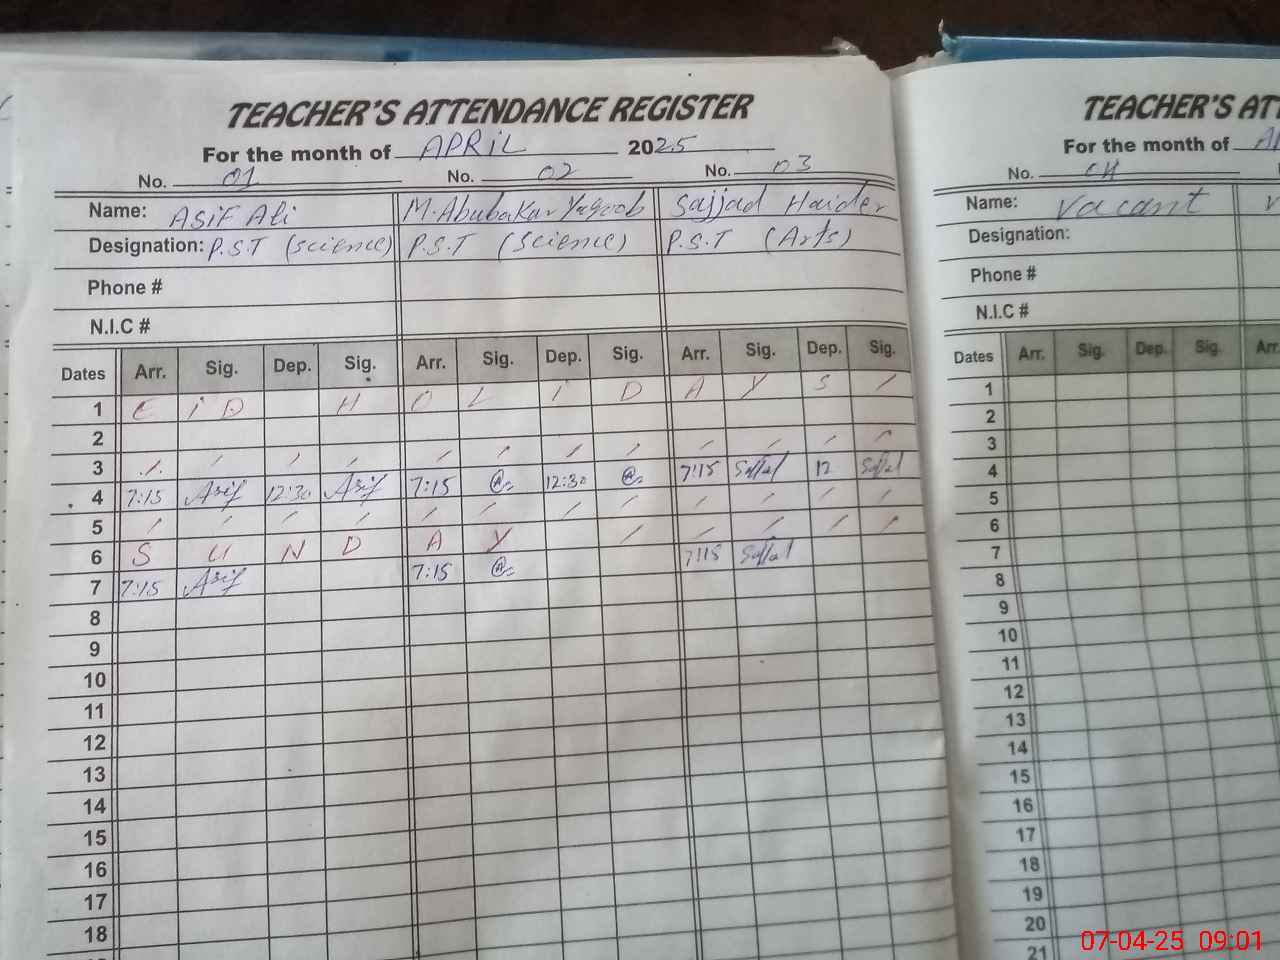 TEACHER'S ATTENDANCE REGISTER
For the month of APRIL 2025
No. 01 No. 02 No. 03
Name: Asif Ali M. Abubakar Yaqoob Sajjad Haider
Designation: P.S.T (science) P.S.T (Science) P.S.T (Arts)
Phone #
N.I.C #
Dates Arr. Sig. Dep. Sig. Arr. Sig. Dep. Sig. Arr. Sig. Dep. Sig.
1 E i D H O L I D A Y S /
2
3 / / / / / / / / / / / /
4 7:15 Asif 12:30 Asif 7:15 12:30 7:15 12
5 / / / / / / / / / / / /
6 S U N D A Y / / / / /
7 7:15 Asif 7:15 7:15
8
9
10
11
12
13
14
15
16
17
18
TEACHER'S ATT
For the month of
No. 04
Name: Vacant
Designation:
Phone #
N.I.C #
Dates Arr. Sig. Dep. Sig. Arr.
1
2
3
4
5
6
7
8
9
10
11
12
13
14
15
16
17
18
19
20
21
07-04-25 09:01